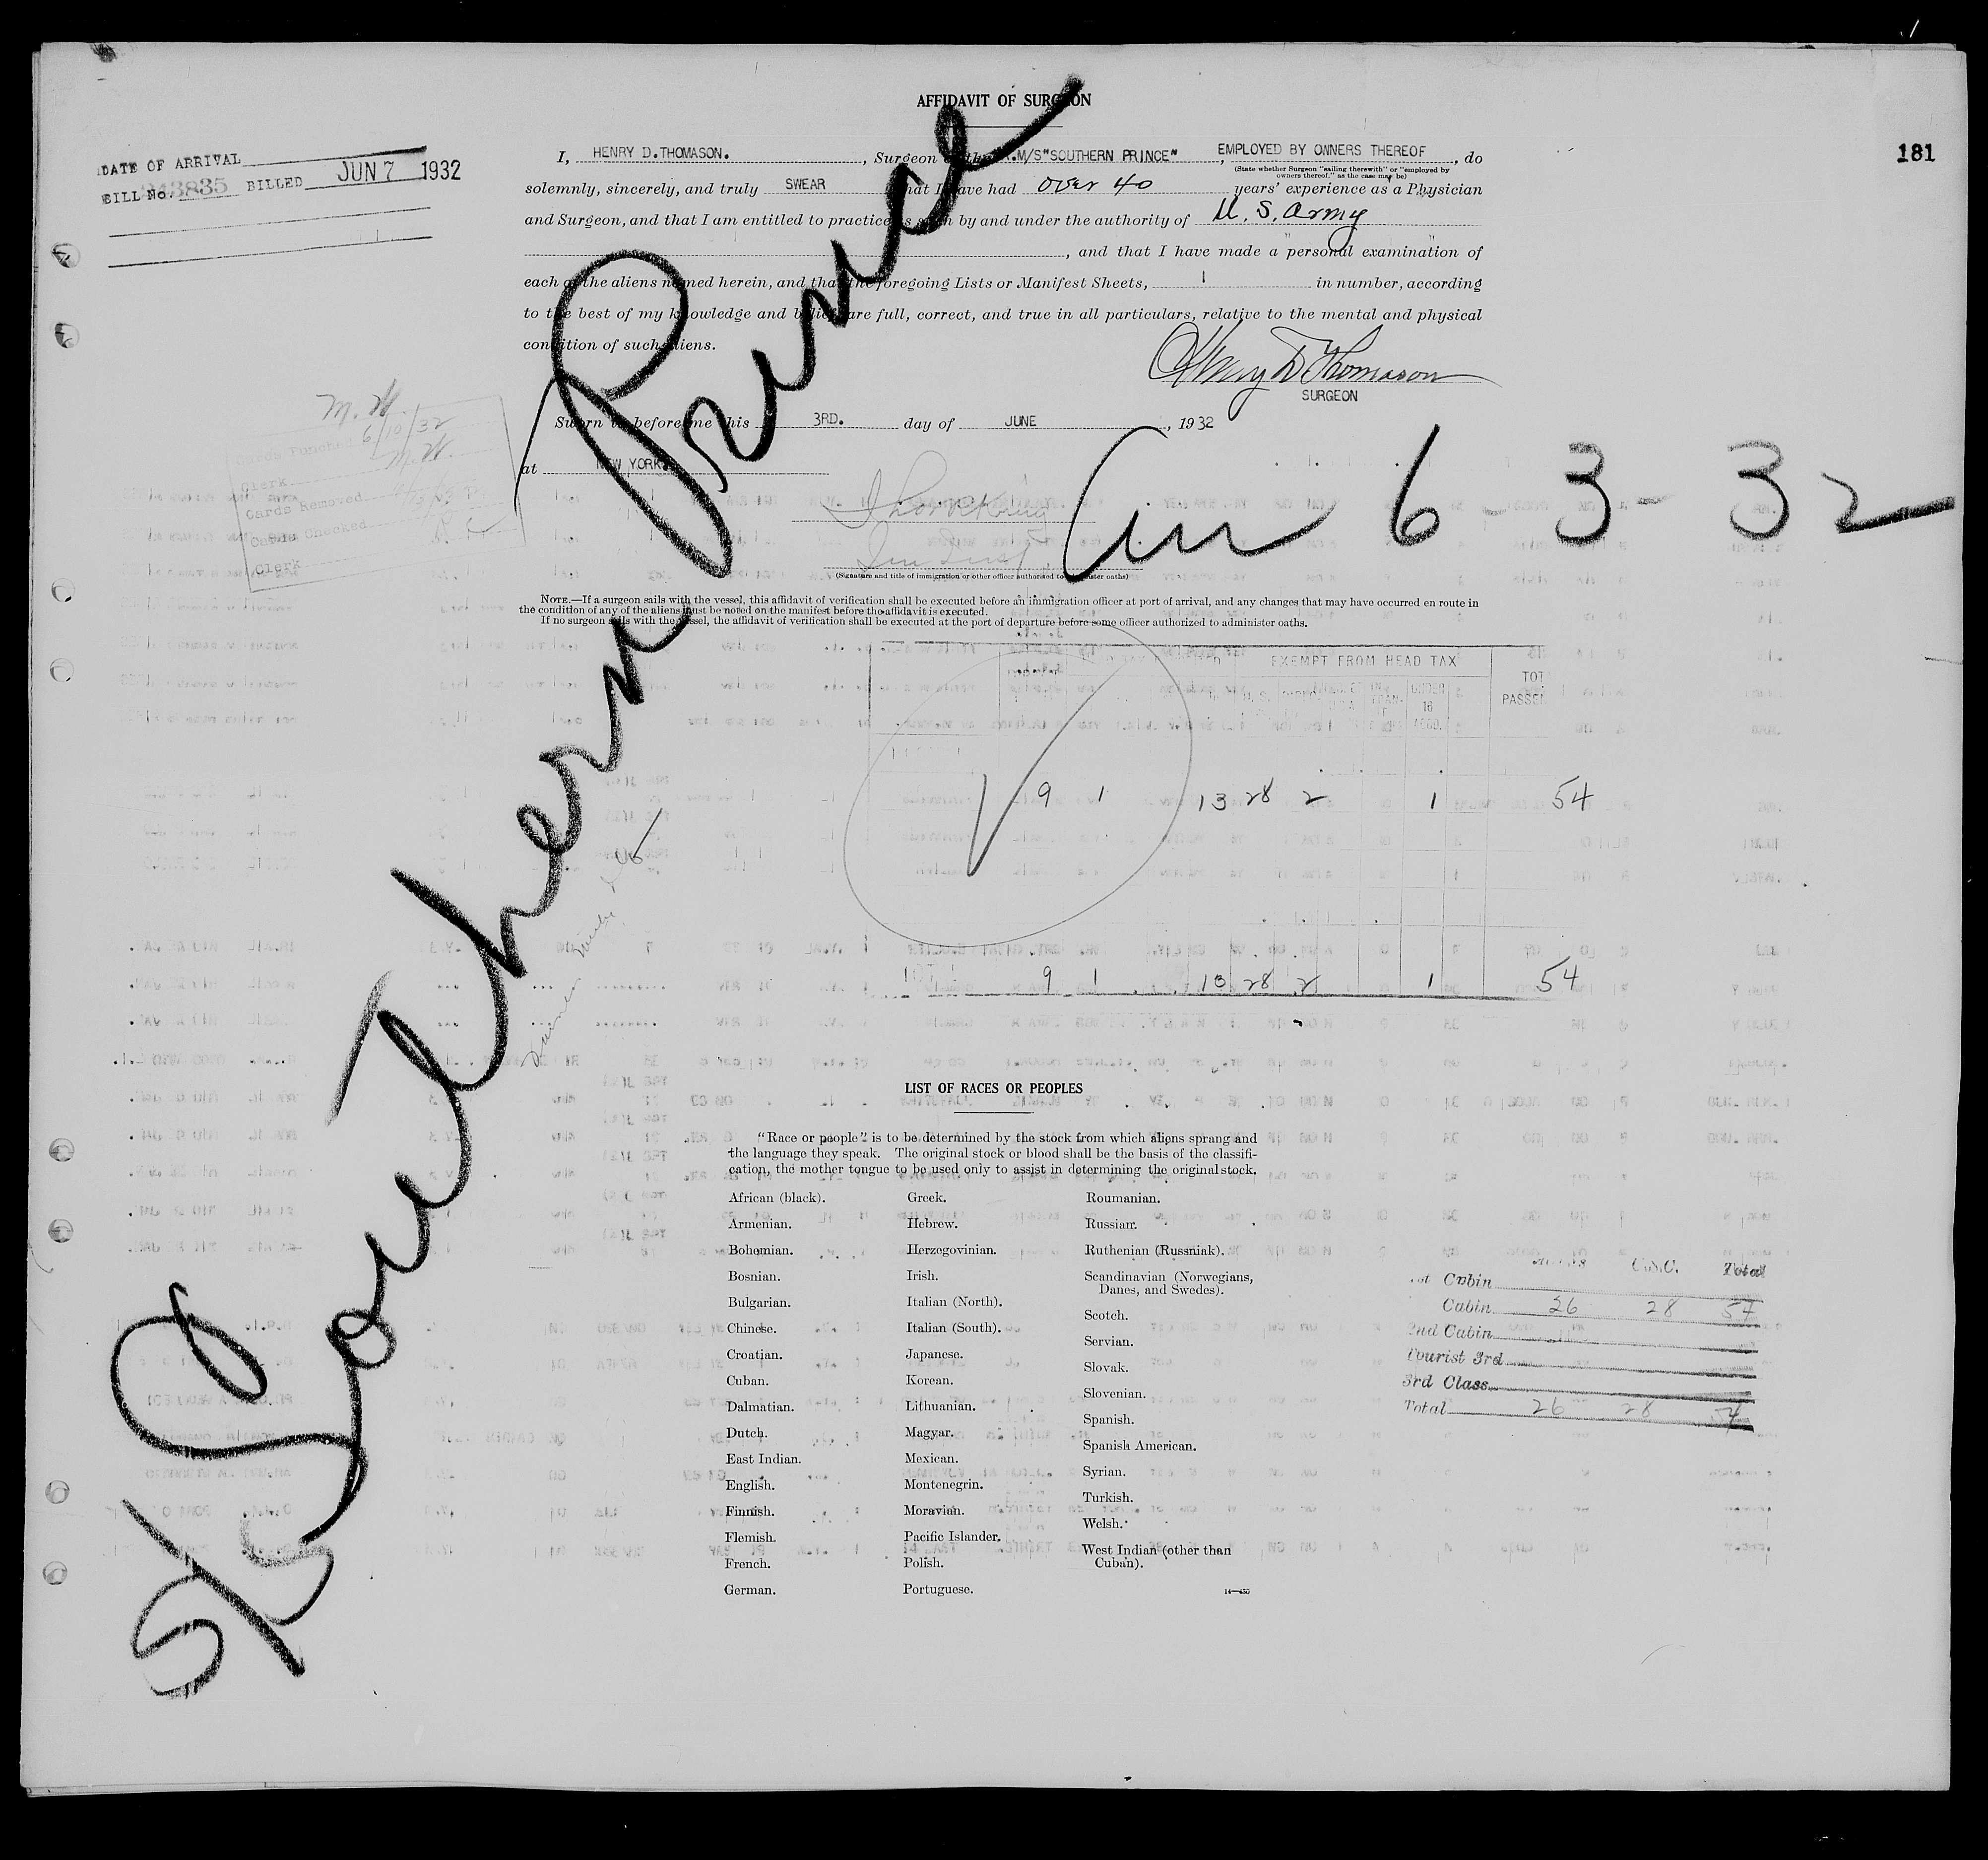 AFFIDAVIT OF SURGEON
181
DATE OF ARRIVAL
BILL No. 243835 BILLED JUN 7 1932
I, HENRY D. THOMASON. , Surgeon of the M/S "SOUTHERN PRINCE" , EMPLOYED BY OWNERS THEREOF , do
(State whether Surgeon "sailing therewith" or "employed by
owners thereof," as the case may be)
solemnly, sincerely, and truly SWEAR that I have had over 40 years' experience as a Physician
and Surgeon, and that I am entitled to practice as such by and under the authority of U. S. Army
, and that I have made a personal examination of
each of the aliens named herein, and that the foregoing Lists or Manifest Sheets, 1 in number, according
to the best of my knowledge and belief, are full, correct, and true in all particulars, relative to the mental and physical
condition of such aliens.
Henry D Thomason
SURGEON
Sworn to before me this 3RD. day of JUNE , 1932
at NEW YORK
M. H.
Cards Punched 6/10/32
Clerk M. H.
Cards Removed
Cards Checked
Clerk
6-3-32
(Signature and title of immigration or other officer authorized to administer oaths)
NOTE.—If a surgeon sails with the vessel, this affidavit of verification shall be executed before an immigration officer at port of arrival, and any changes that may have occurred en route in
the condition of any of the aliens must be noted on the manifest before the affidavit is executed.
If no surgeon sails with the vessel, the affidavit of verification shall be executed at the port of departure before some officer authorized to administer oaths.
S/S Southern Prince
EXEMPT FROM HEAD TAX
UNDER
16
9 1 13 28 2 1 54
9 1 13 28 2 1 54
LIST OF RACES OR PEOPLES
"Race or people" is to be determined by the stock from which aliens sprang and
the language they speak. The original stock or blood shall be the basis of the classifi-
cation, the mother tongue to be used only to assist in determining the original stock.
African (black).
Armenian.
Bohemian.
Bosnian.
Bulgarian.
Chinese.
Croatian.
Cuban.
Dalmatian.
Dutch.
East Indian.
English.
Finnish.
Flemish.
French.
German.
Greek.
Hebrew.
Herzegovinian.
Irish.
Italian (North).
Italian (South).
Japanese.
Korean.
Lithuanian.
Magyar.
Mexican.
Montenegrin.
Moravian.
Pacific Islander.
Polish.
Portuguese.
Roumanian.
Russian.
Ruthenian (Russniak).
Scandinavian (Norwegians,
Danes, and Swedes).
Scotch.
Servian.
Slovak.
Slovenian.
Spanish.
Spanish American.
Syrian.
Turkish.
Welsh.
West Indian (other than
Cuban).
14—450
U.S.C. Total
1st Cabin
Cabin 26 28 54
2nd Cabin
Tourist 3rd
3rd Class
Total 26 28 54